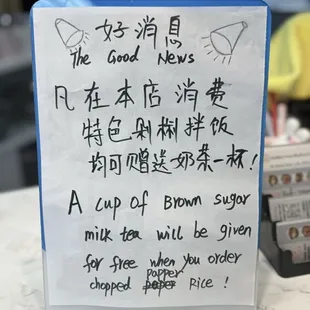 好消息
The Good News
凡在本店消费
特色剁椒拌饭
均可赠送奶茶一杯!
A cup of Brown sugar
milk tea will be given
for free when you order
papper
chopped Rice !